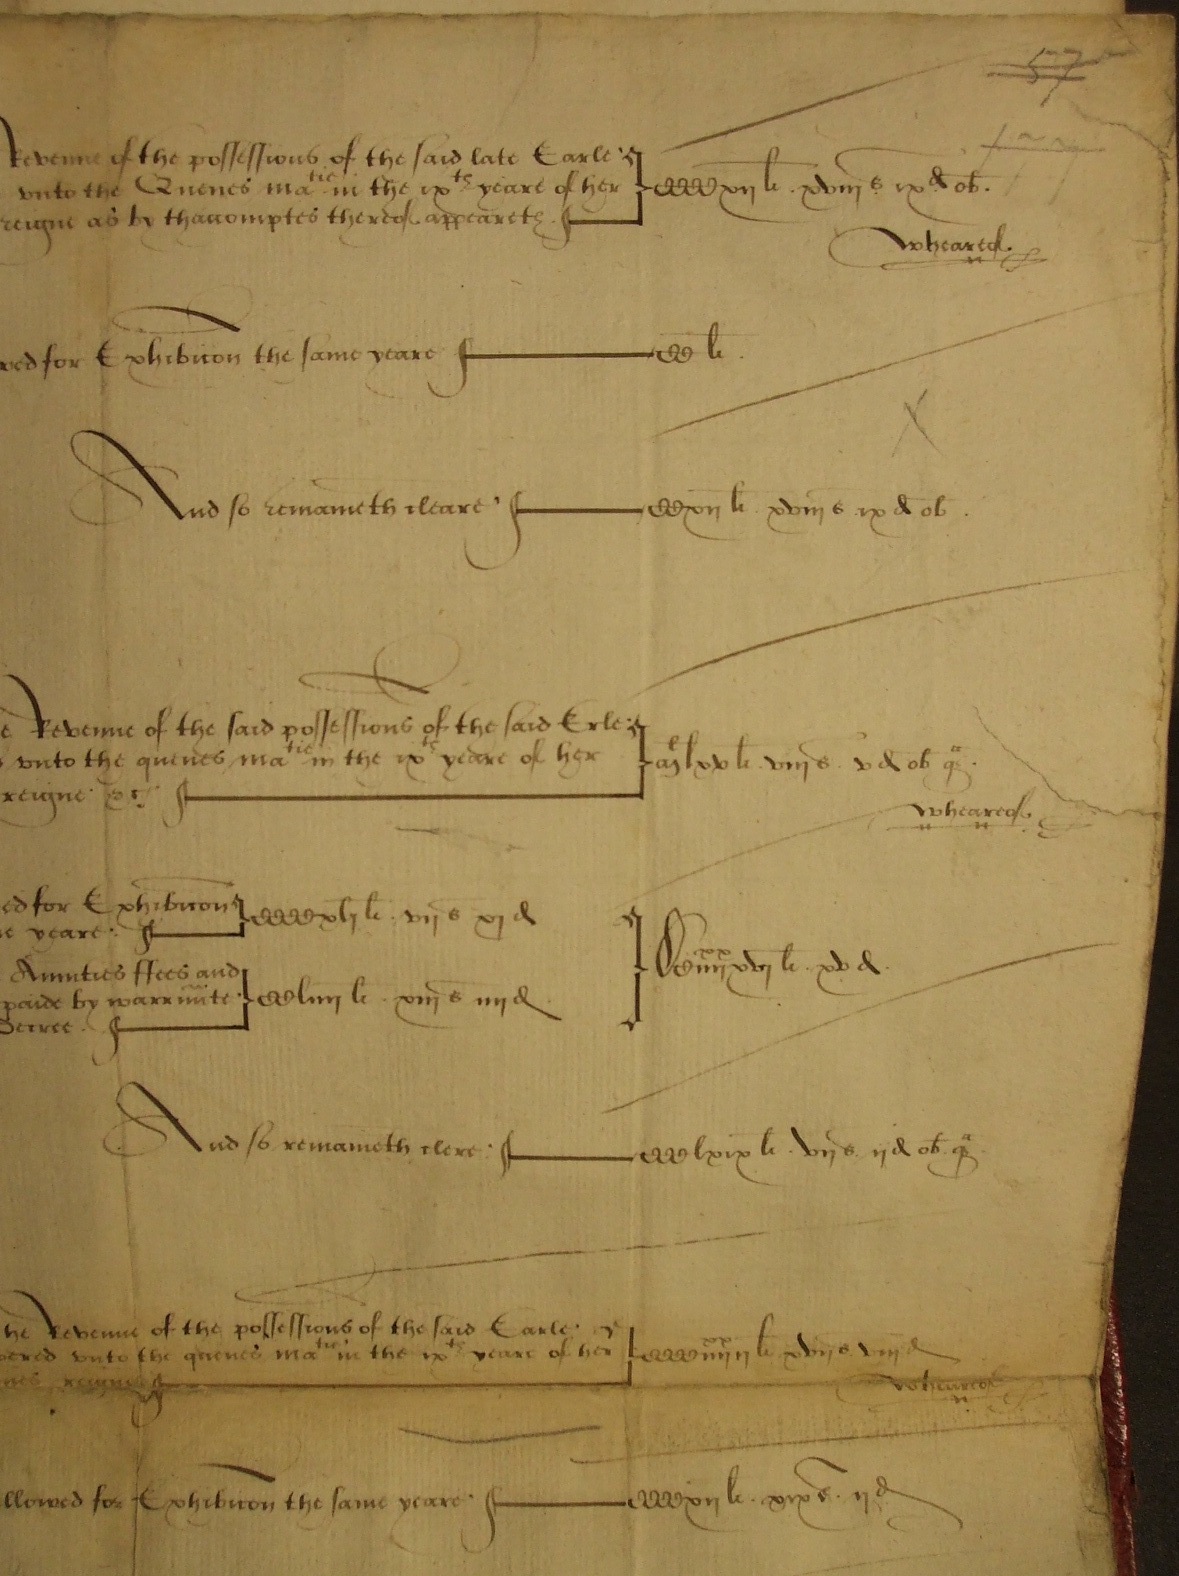 57
Revenue of the possessions of the said late Earle
vnto the Quenes ma^tie in the ix^th yeare of her
reigne as by thaccomptes therof appeareth
CCCCxij li. xviij s ix d ob.
wheareof
wed for Exhibicon the same yeare CC li.
And so remaineth cleare CCxij li. xviij s ix d ob.
e Revenue of the said possessions of the said Erle
vnto the quenes ma^tie in the ix^th yeare of her
reigne &c
m^l lxv li. viij s. v d ob q^a.
wheareof
ed for Exhibicon
e yeare
CCCCxlj li. vij s xj d
Annuties ffees and
paide by warrante
Decree
CCliiij li. xiij s iiij d
DCiiij^xx xvj li. xv d.
And so remaineth clere CCClxix li. vij s. ij d ob q^a.
he Revenue of the possessions of the said Earle
vered vnto the quenes ma^tie in the ix^th yeare of her
nes reigne
CCCiiij^xx ij li. xvij s viij d
wheareof
llowed for Exhibicon the same yeare CCCxij li. xix s. ij d